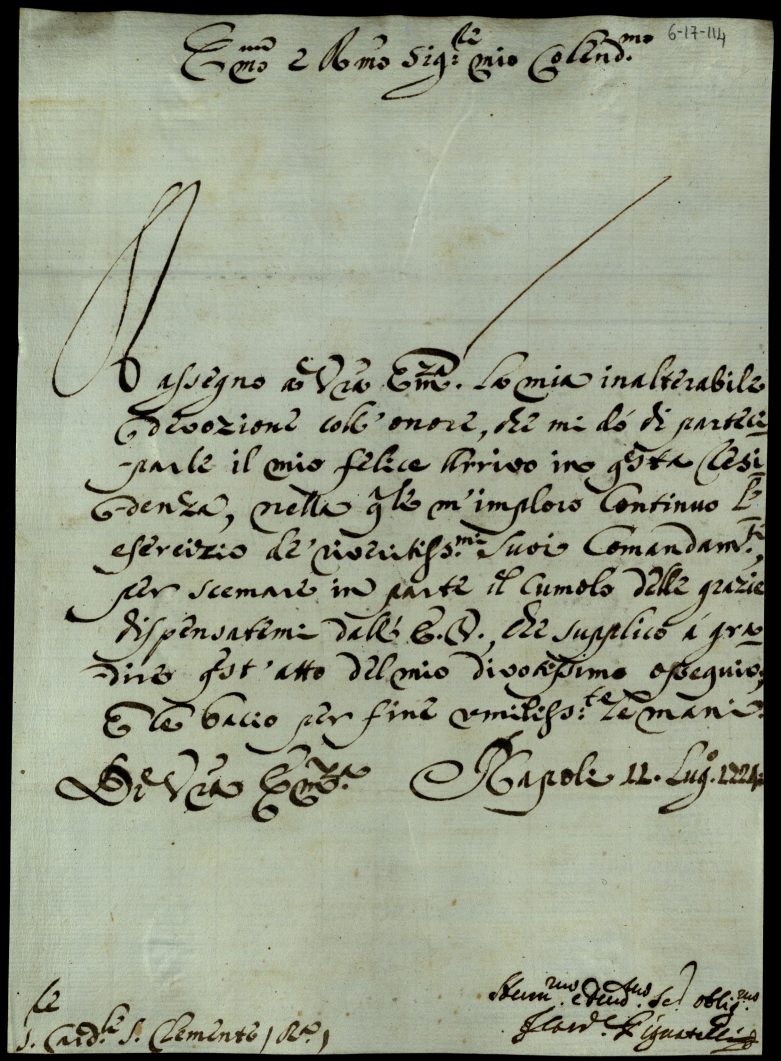 6-17-114
Em̃o e Rmo Sig.re mio Colend.mo
Rassegno a Vr̃a Em̃za. La mia inalterabile
devozione coll' onore, che mi dó di parteci-
-parle il mio felice Arrivo in q̃sta Resi-
-denza, nella q̃le m'imploro Continuo L'
esercizio de' riveritiss.mi Suoi Comandam.ti,
per scemare in parte il Cumolo delle grazie
dispensatemi dall' E.V., che supplico á gra-
-dire q̃st' atto del mio divotissimo ossequio;
E le bacio per fine umiliss.te le mani.
Di Vr̃a Em̃za. Napoli 11. Lug.o 1724
Hum.mo e Deud.mo Se.r oblig.mo
S.re Card.le S. Clemente, Rã, F Card.le Pignatelli